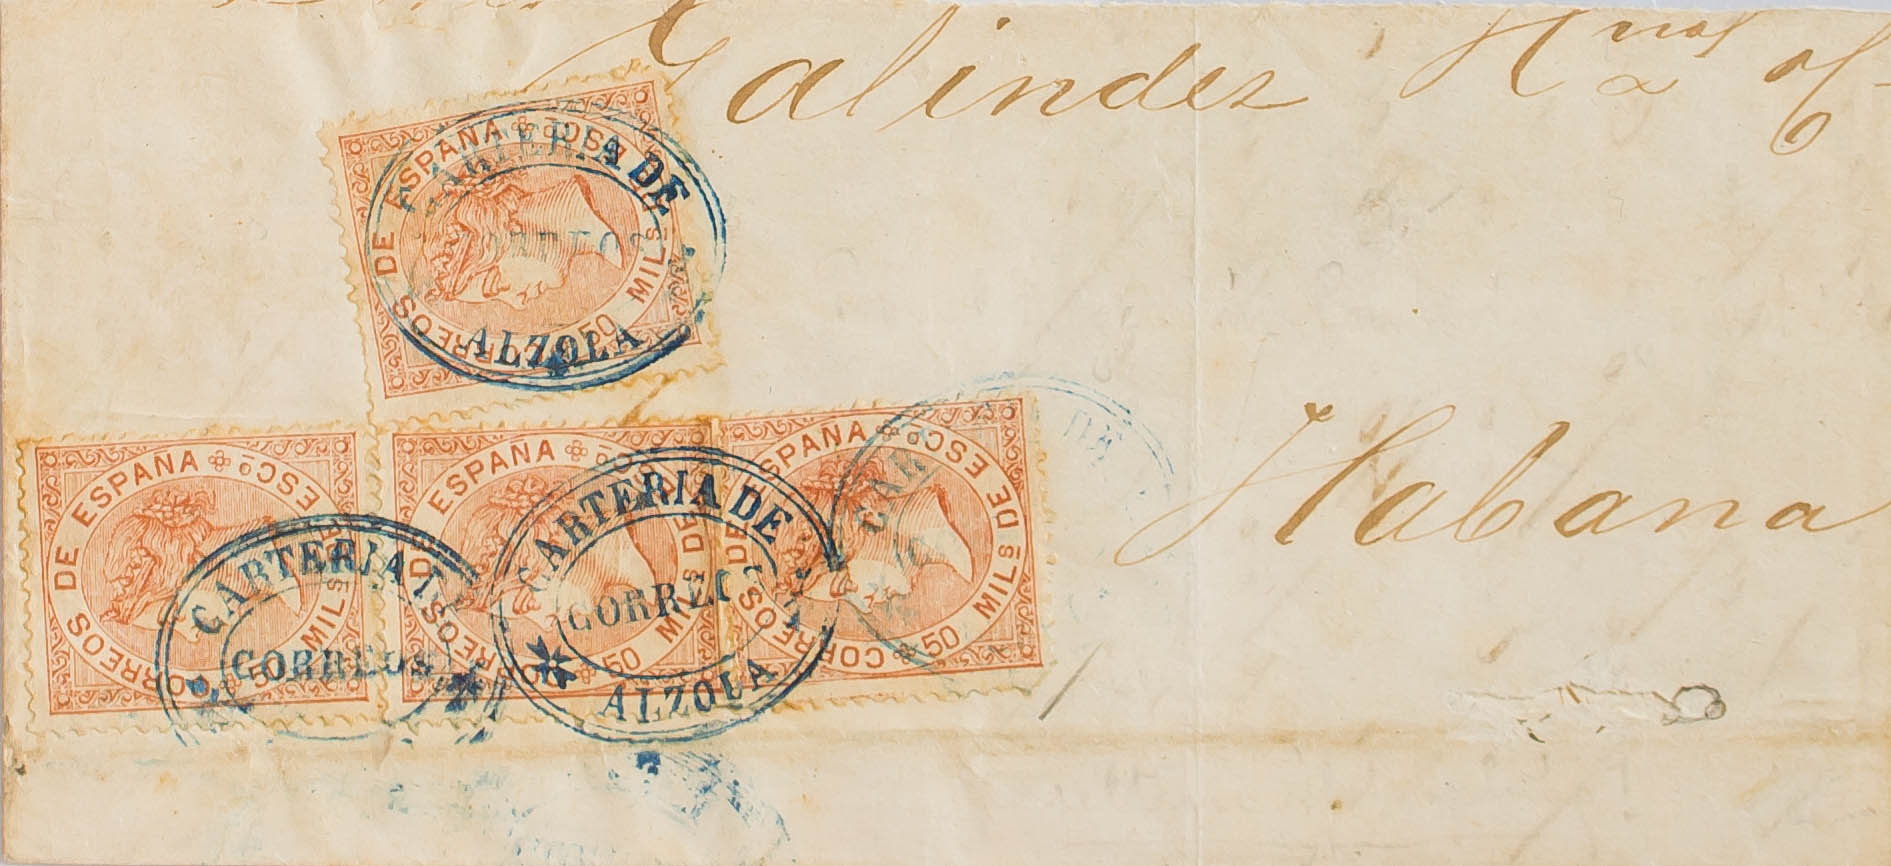 Galindez Hnos
Habana
CORREOS DE ESPAÑA ESCº DE 50 MILS
CARTERIA DE
CORREOS
ALZOLA
CORREOS DE ESPANA ESCº 50 MILS
CARTERIA
CORREOS
DE ESPANA 50 MILS
CARTERIA DE
CORREOS
ALZOLA
CORREOS DE ESPANA ESCº DE 50 MILS
CAR DE